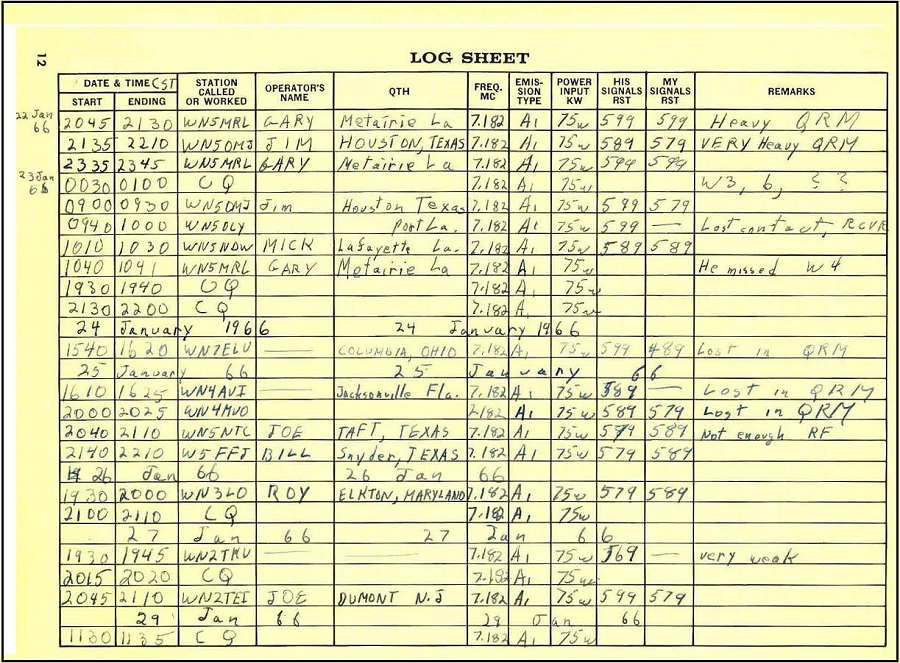 12
LOG SHEET
DATE & TIME CST STATION CALLED OR WORKED OPERATOR'S NAME QTH FREQ. MC EMIS-SION TYPE POWER INPUT KW HIS SIGNALS RST MY SIGNALS RST REMARKS
START ENDING
22 Jan 66 2045 2130 WN5MRL GARY Metairie La 7.182 A1 75w 599 599 Heavy QRM
2135 2210 WN5OMJ JIM HOUSTON, TEXAS 7.182 A1 75w 589 579 VERY Heavy QRM
2335 2345 WN5MRL GARY Metairie La 7.182 A1 75w 599 599
23 Jan 66 0030 0100 CQ 7.182 A1 75w W3, 6, ? ?
0900 0930 WN5OMJ Jim Houston Texas 7.182 A1 75w 599 579
0940 1000 WN5OLY Port La. 7.182 A1 75w 599 — Lost contact, RCVR
1010 1030 WN5NDW MICK Lafayette La. 7.182 A1 75w 589 589
1040 1041 WN5MRL GARY Metairie La 7.182 A1 75w He missed W4
1930 1940 CQ 7.182 A1 75w
2130 2200 CQ 7.182 A1 75w
24 January 1966 24 January 1966
1540 1620 WN7ELU — COLUMBIA, OHIO 7.182 A1 75w 599 489 Lost in QRM
25 January 66 25 January 66
1610 1625 WN4AVI Jacksonville Fla. 7.182 A1 75w 589 — Lost in QRM
2000 2025 WN4MVO 7.182 A1 75w 589 579 Lost in QRM
2040 2110 WN5NTC JOE TAFT, TEXAS 7.182 A1 75w 579 589 Not enough RF
2140 2210 W5FFJ BILL Snyder, TEXAS 7.182 A1 75w 579 589
26 Jan 66 26 Jan 66
1930 2000 WN3LO ROY ELKTON, MARYLAND 7.182 A1 75w 579 589
2100 2110 CQ 7.182 A1 75w
27 Jan 66 27 Jan 66
1930 1945 WN2TKU — — 7.182 A1 75w 369 — very weak
2015 2020 CQ 7.182 A1 75w
2045 2110 WN2TEI JOE DUMONT N.J 7.182 A1 75w 599 579
29 Jan 66 29 Jan 66
1130 1135 CQ 7.182 A1 75w